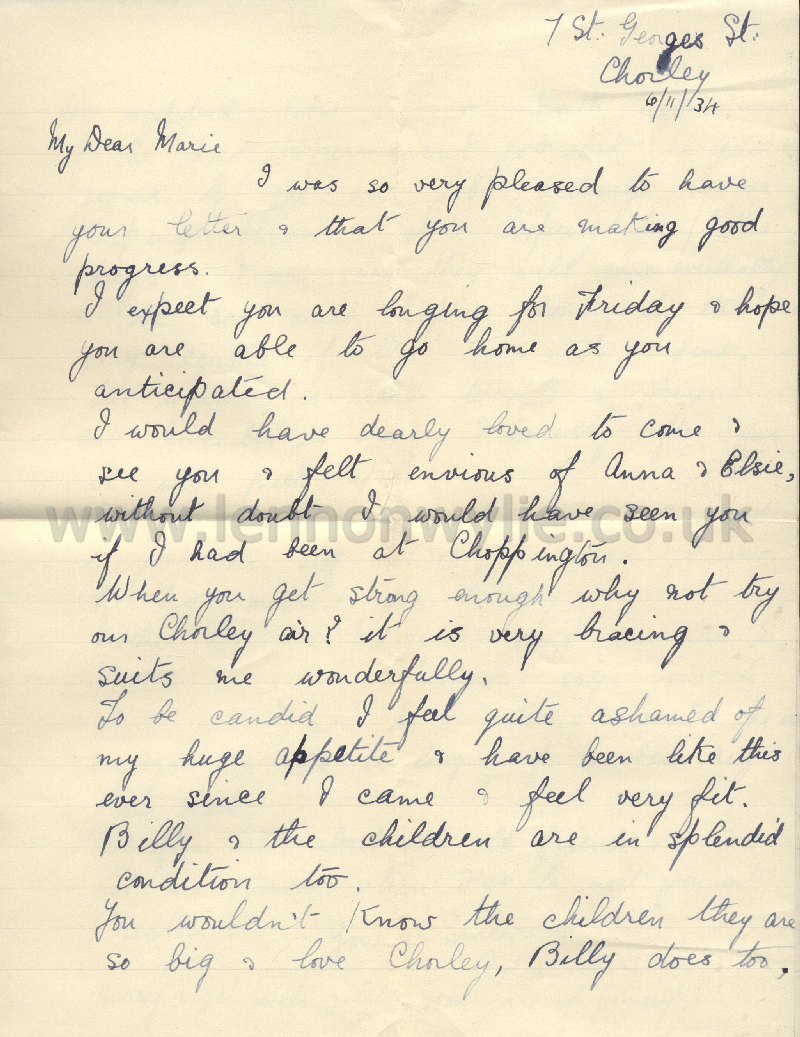 7 St. Georges St.
Chorley
6/11/34
My Dear Marie
I was so very pleased to have
your letter & that you are making good
progress.
I expect you are longing for Friday & hope
you are able to go home as you
anticipated.
I would have dearly loved to come &
see you & felt envious of Anna & Elsie,
www.lennonwylie.co.uk
without doubt I would have seen you
if I had been at Choppington.
When you get strong enough why not try
our Chorley air? it is very bracing &
suits me wonderfully.
To be candid I feel quite ashamed of
my huge appetite & have been like this
ever since I came & feel very fit.
Billy & the children are in splendid
condition too.
You wouldn't know the children they are
so big & love Chorley, Billy does too.